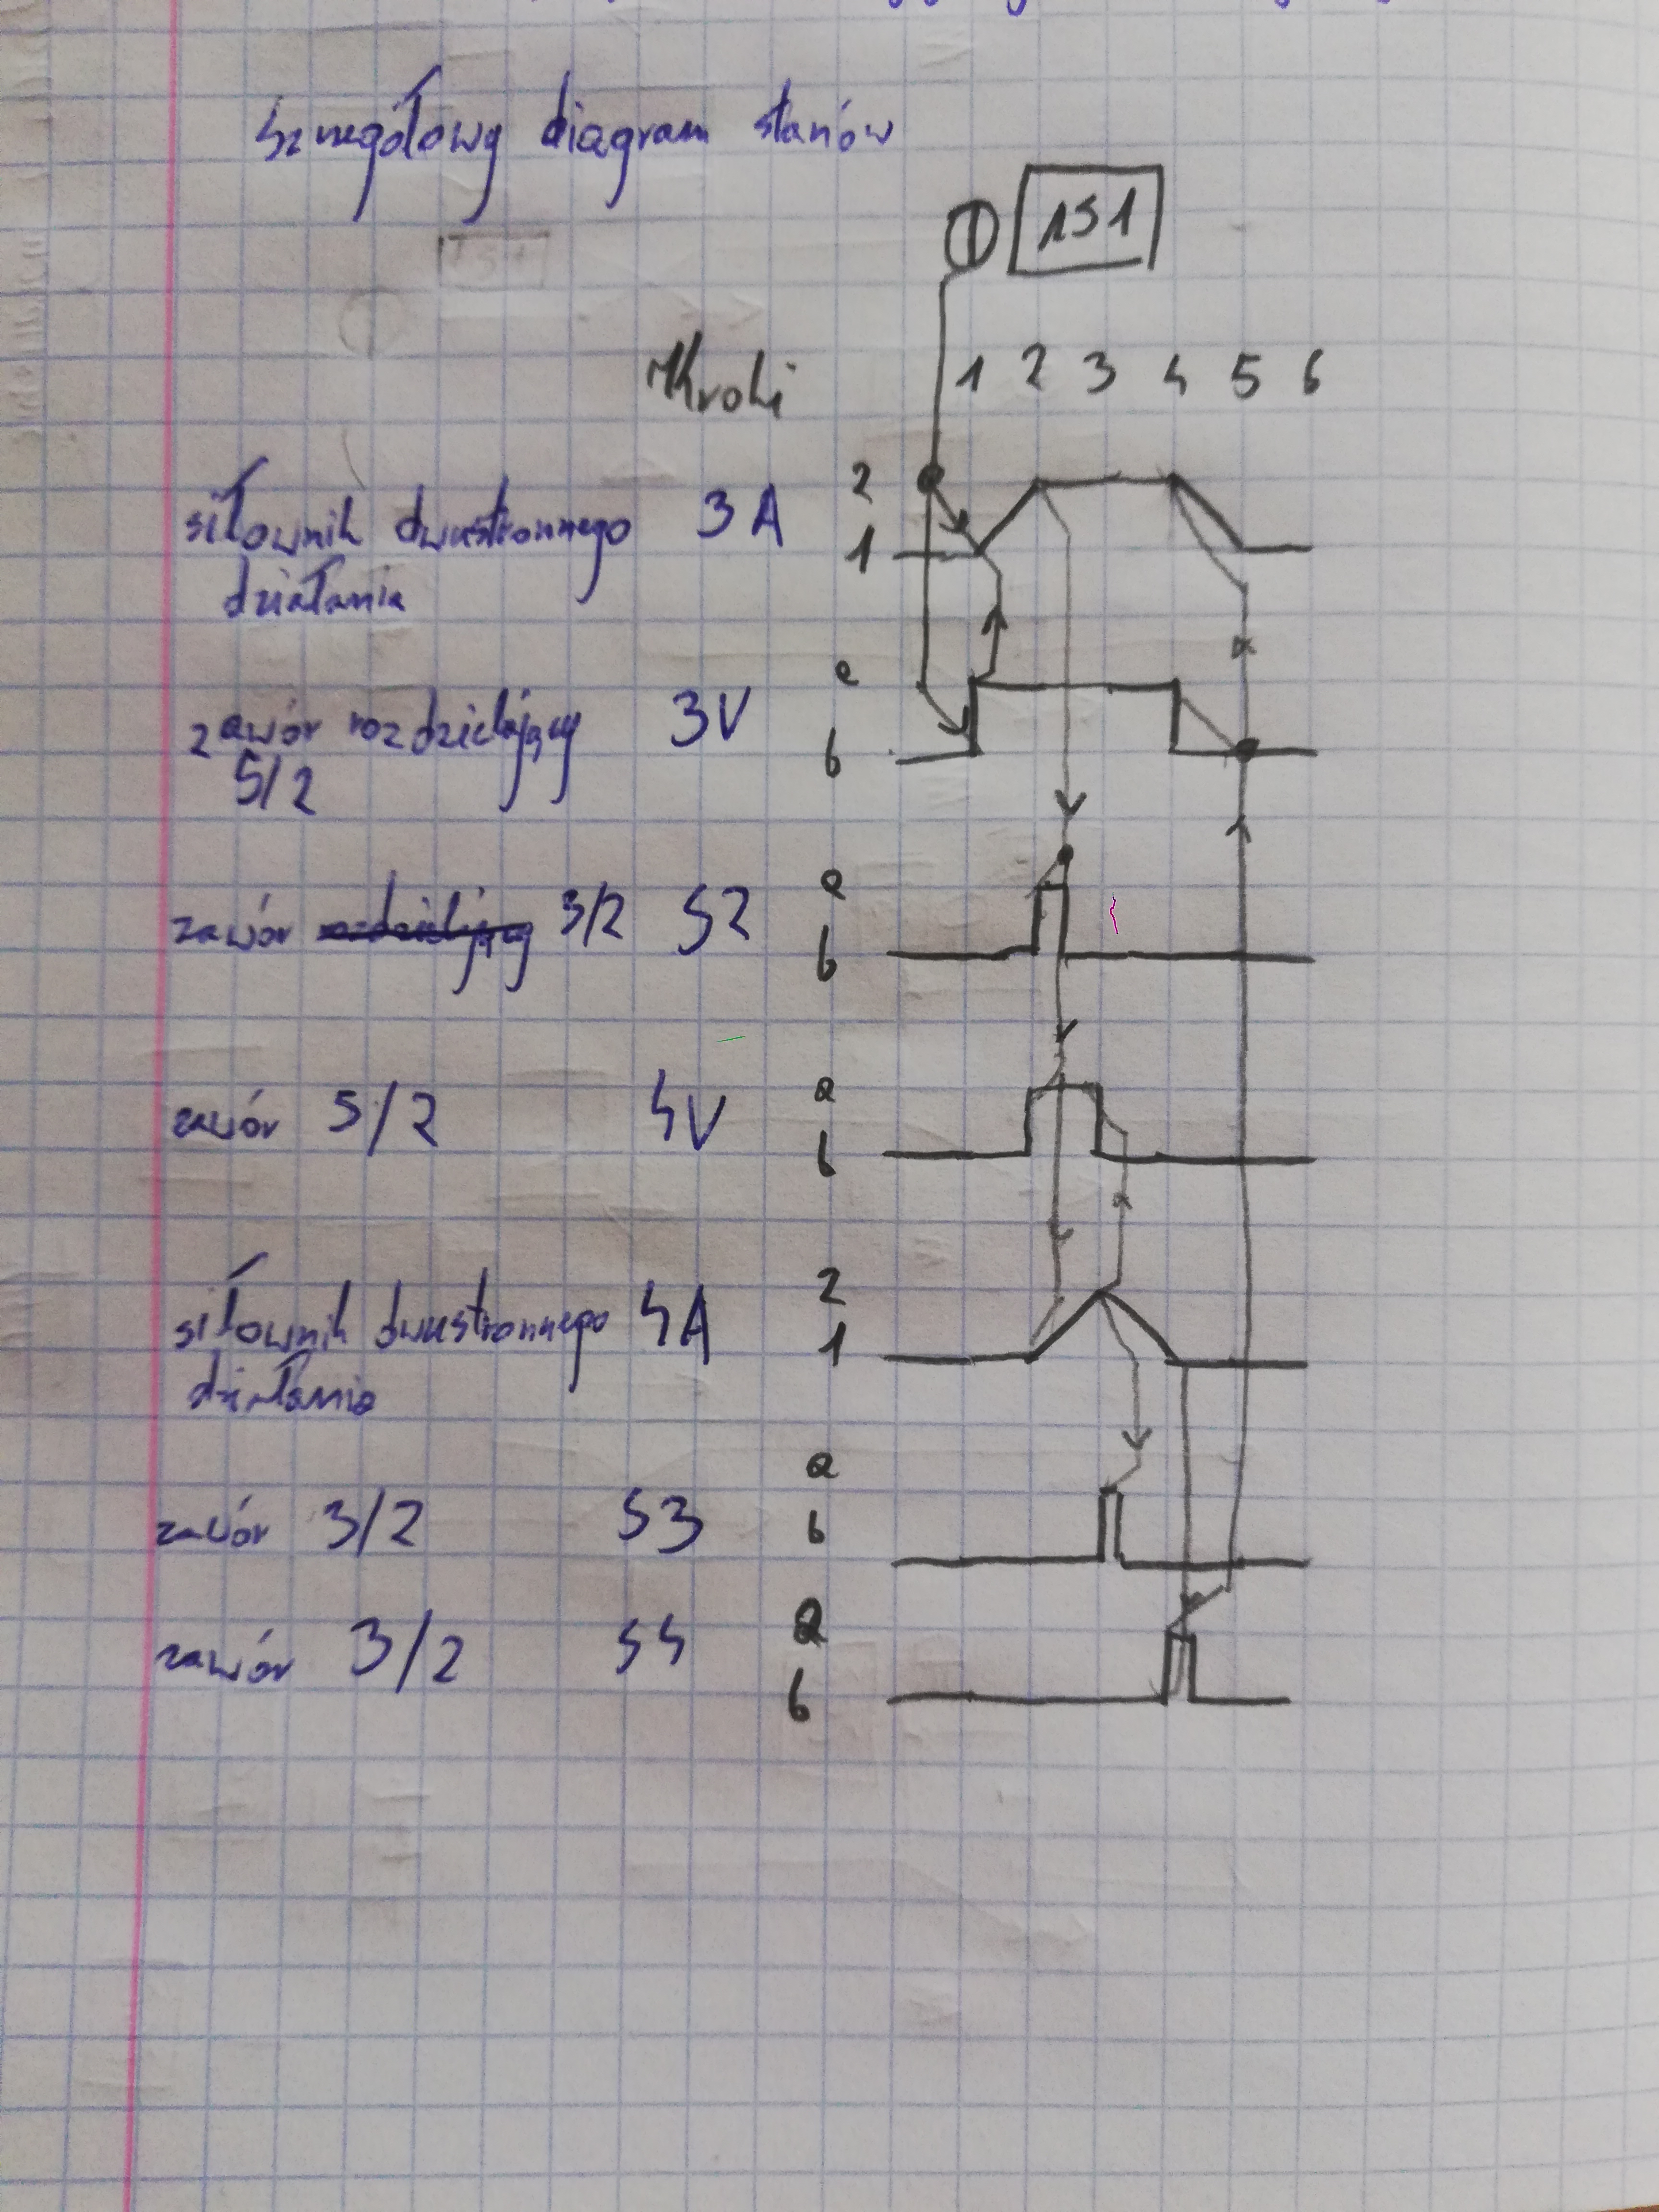 Szczegółowy diagram stanów
1S1
Kroki 1 2 3 4 5 6
siłownik dwustronnego 3A 2
działania 1
zawór rozdzielający 3V a
5/2 b
zawór rozdzielający 3/2 S2 a
b
zawór 5/2 4V a
b
siłownik dwustronnego 4A 2
działania 1
zawór 3/2 S3 a
b
zawór 3/2 S4 a
b